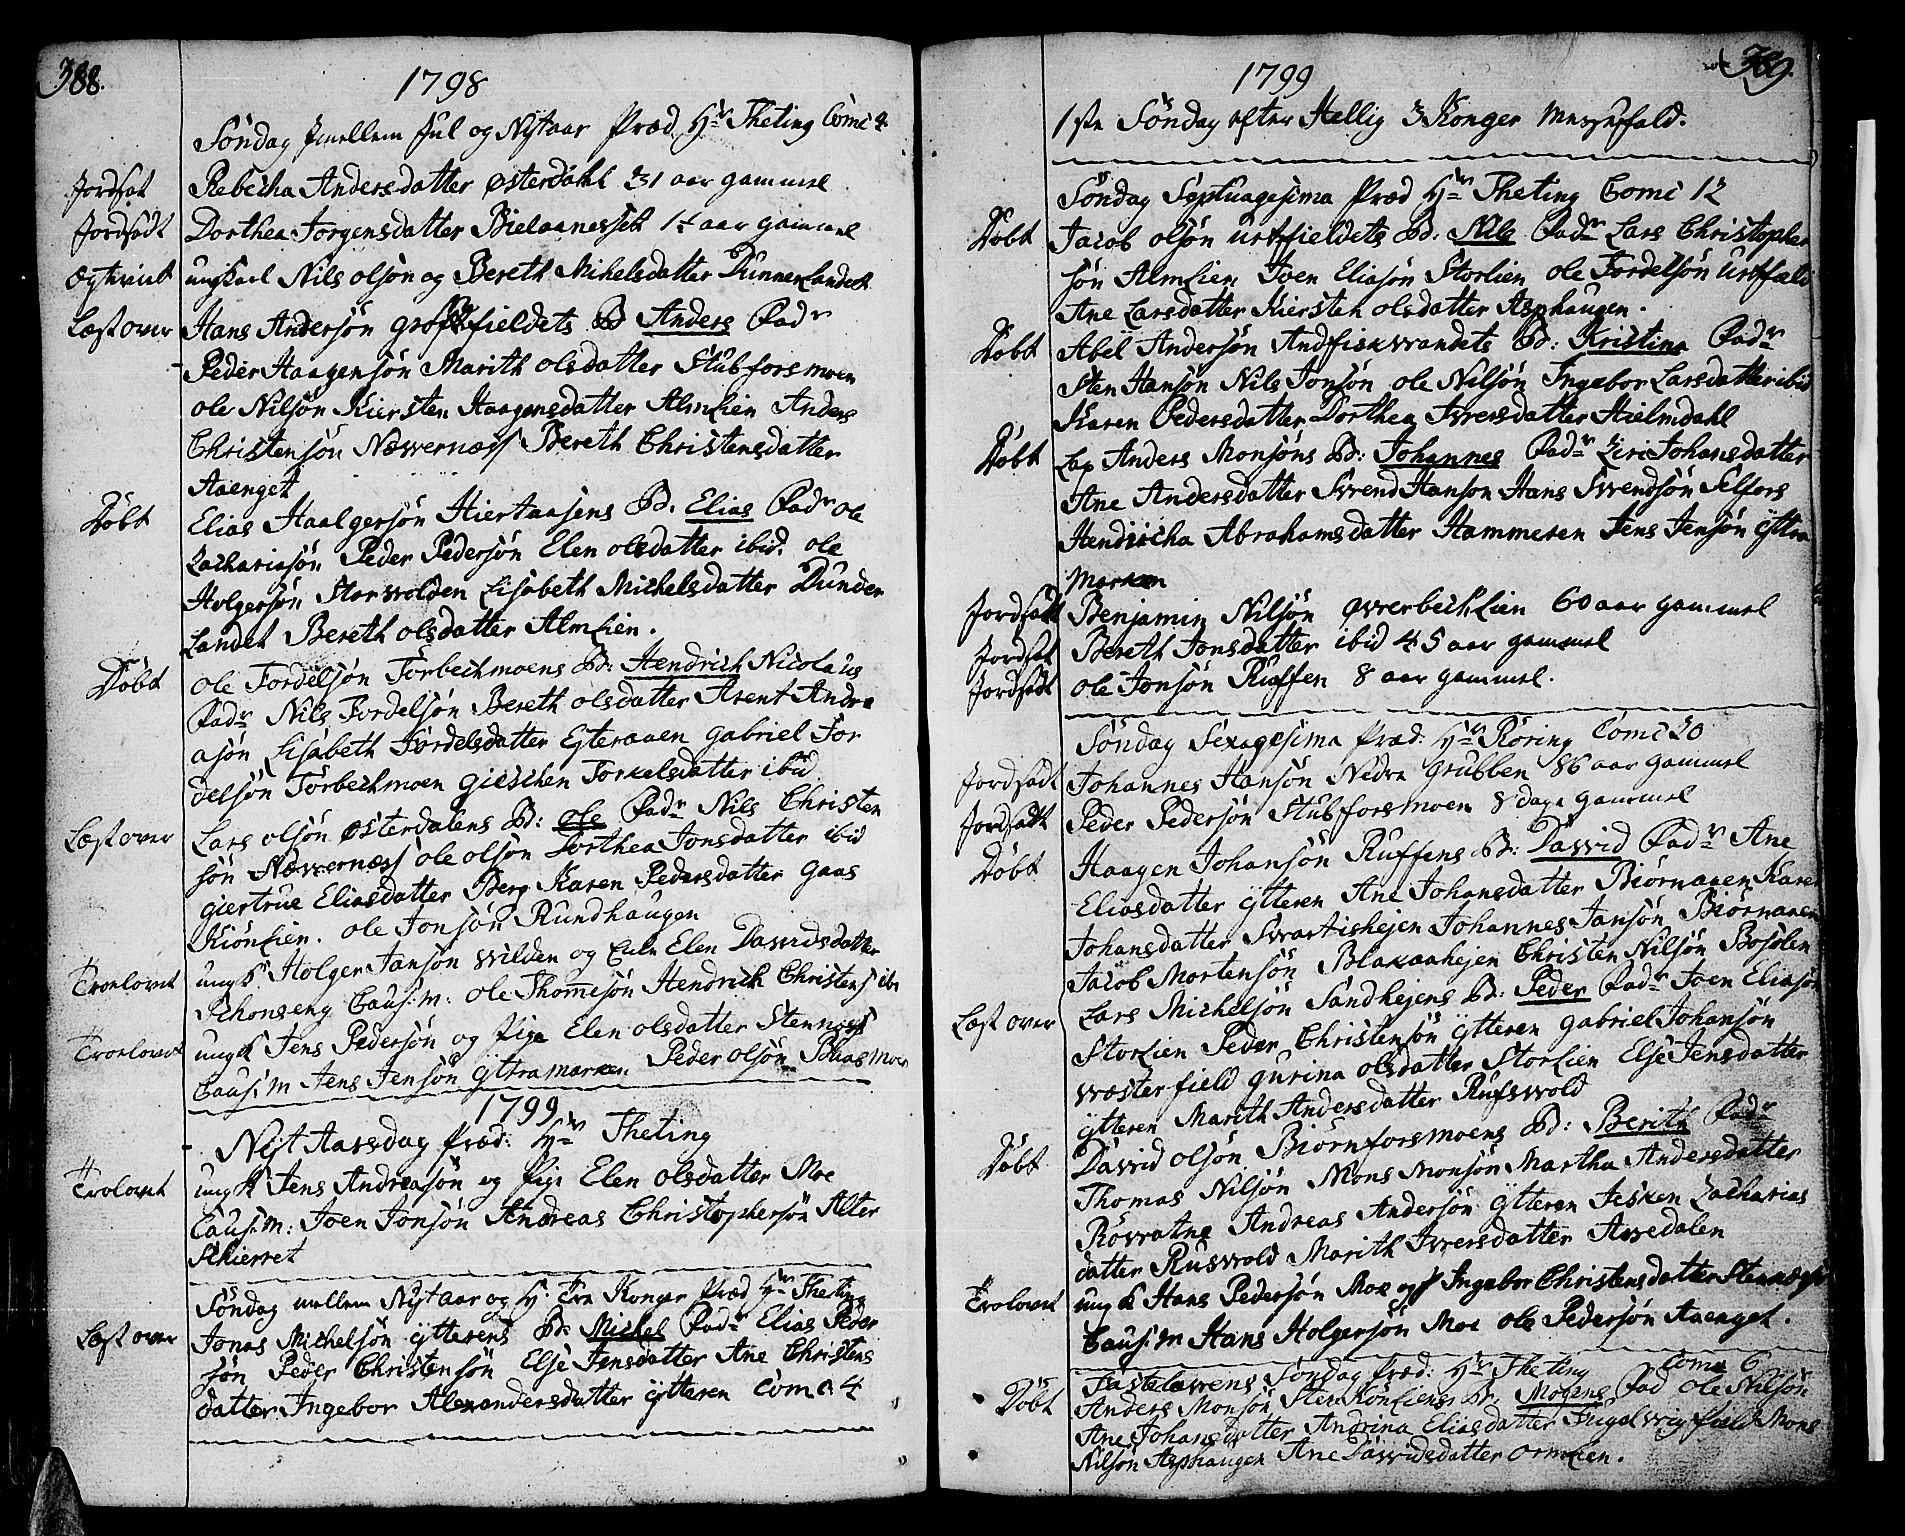 388.
1798
Söndag Jmellem Jul og Nytaar Præd Hr Theting Comc 4.
Jordfæt Rebecha Andersdatter Østerdahl 31 aar gammel
Jordfædt Dorthea Jorgensdatter Bielaanesset 1½ aar gammel
Ægtevict ungkarl Nils olsön og Bereth Michelsdatter Dunnerlandet
Læst over Hans Andersön fieldets B Anders Fadr
Peder Haagensön Marith olsdatter Stubforsmoen
ole Nilsön Kiersten Haagensdatter Almlien Anders
Christensön Næwernæss Bereth Christensdatter
Aaenget
Döbt Elias Haalgersön Hiertaasens B. Elias Fadr ole
Zachariasön Peder Pedersön Elen olsdatter ibid. ole
Holgersön Storwolden Lisabeth Michelsdatter Dunder
Landet Bereth olsdatter Almlien.
Döbt ole Tordelsön Torbechmoens B: Hendrich Nicolaus
Fadr Nils Tordelsön Bereth olsdatter Arent Andre
asön Lisabeth Tordelsdatter Yteraaen gabriel Tor
delsön Torbechmoen gieschen Torkelsdatter ibid
Læst over Lars olsön Østerdalens B: ole Fadr Nils Christen
sön Næwernæss ole olsön Dorthea Jonsdatter ibid
giertrue Eliasdatter Berg Karen Pedersdatter gaas
Kiönlien. ole Jonsön Rundhaugen
Troelovet ungk. Holger Jansön wilden og Elen Dawidsdatter
Schonseng Caus:m: ole Thommesön Hendrich Christens ibi
Troelovet ungk Jens Pedersön og pige Elen olsdatter Stennæss
Caus:m Jens Jensön Yttramarken Peder olsön Blaasmoe
1799
Nyt Aarsdag Præd: Hr Theting
Trolovet ungk Jens Andreasön og pige Elen olsdatter Moe
Caus:m: Joen Jonsön Andreas Christophersön Alter
Skierret
Söndag mellem Nytaar og H. Tre Konger Præd Hr Theting
Læst over Jonas Michelsön Ytterens B: Michel Fadr Elias Peder
sön Peder Christensön Else Jensdatter Ane Christens
datter Ingebor Alexandersdatter Ytteren Comc. 4
389.
1799
1ste Söndag efter Hellig 3 Konger Messefald.
Söndag Septuagesima Præd Hr Theting Comc 12
Döbt Jacob olsön urtfieldets B: Nils Fadr Lars Christopher
sön Almlien Joen Eliasön Storlien ole Tordelsön urtfield
Ane Larsdatter Kiersten olsdatter Asphaugen.
Döbt Abel Andersön Andfiskvandets B: Kristina Fadr
Sten Hansön Nils Jonsön ole Nilsön Ingebor Larsdatter ibid
Karen Pedersdatter Dorthea Iversdatter Hielmdahl
Döbt Lap Anders Monsöns B: Johannes Fadr Ziri Johansdatter
Ane Andersdatter Svend Hanson Hans Svendsön Selfors
Hendricha Abrahamsdatter Hammeren Jens Jensön Yttra
Marken
Jordfædt Benjamin Nilsön Øwerbechlien 60 aar gammel
Jordfæt Bereth Jonsdatter ibid 45 aar gammel
Jordfædt ole Jonsön Ruffen 8 aar gammel.
Söndag Sexagesima Præd: Hr Röring Comc 20
Jordfædt Johannes Hansön Nedre Grubben 86 aar gammel
Jordfædt Peder Pedersön Stubforsmoen 8 dage gammel
Döbt Haagen Johansön Ruffens B: Dawid Fadr Ane
Eliasdatter Ytteren Ane Johansdatter Biörnaaen Karen
Johansdatter Svartishejen Johannes Jansön Biörnaaen
Jacob Mortensön Blakaahejen Christen Nilsön Bosölen
Læst over Lars Michelsön Sandhejens B: Peder Fadr Joen Eliasön
Storlien Peder Christensön Ytteren gabriel Johansön
wæsterfield gurina olsdatter Storlien Else Jensdatter
Ytteren Marith Andersdatter Rufswold
Döbt David olsön Biörnforsmoens B: Berith Fadr
Thomas Nilsön Mons Monsön Martha Andersdatter
Röwatne Andreas Andersön Ytteren Jesken Zacharias
datter Ruswold Marith Iversdatter Awedalen
Trolovet ung k Hans Pedersön Moe og p Ingebor Christensdatter Stennæss
Caus:m Hans Holgersön Moe ole Pedersön Aaenget.
Fastelawens Söndag Præd: Hr Theting Comc 6
Döbt Anders Monsön Könliens B: Mogens Fad ole Nilsön
Ane Johansdatter Andrina Eliasdatter Ingelwigfield Mons
Nilsön Asphaugen Ane Dawidsdatter ormlien.